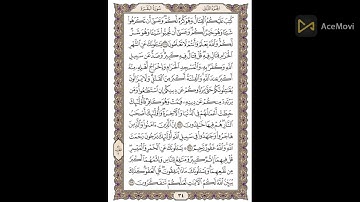 الجزء الثاني
سورة البقرة
AceMovi
كُتِبَ عَلَيْكُمُ ٱلْقِتَالُ وَهُوَ كُرْهٌ لَّكُمْ وَعَسَىٰٓ أَن تَكْرَهُوا۟
شَيْـًٔا وَهُوَ خَيْرٌ لَّكُمْ وَعَسَىٰٓ أَن تُحِبُّوا۟ شَيْـًٔا وَهُوَ شَرٌّ
لَّكُمْ وَٱللَّهُ يَعْلَمُ وَأَنتُمْ لَا تَعْلَمُونَ ٢١٦ يَسْـَٔلُونَكَ عَنِ ٱلشَّهْرِ
ٱلْحَرَامِ قِتَالٍ فِيهِ قُلْ قِتَالٌ فِيهِ كَبِيرٌ وَصَدٌّ عَن سَبِيلِ ٱللَّهِ
وَكُفْرٌۢ بِهِۦ وَٱلْمَسْجِدِ ٱلْحَرَامِ وَإِخْرَاجُ أَهْلِهِۦ مِنْهُ أَكْبَرُ
عِندَ ٱللَّهِ وَٱلْفِتْنَةُ أَكْبَرُ مِنَ ٱلْقَتْلِ وَلَا يَزَالُونَ يُقَٰتِلُونَكُمْ
حَتَّىٰ يَرُدُّوكُمْ عَن دِينِكُمْ إِنِ ٱسْتَطَٰعُوا۟ وَمَن يَرْتَدِدْ
مِنكُمْ عَن دِينِهِۦ فَيَمُتْ وَهُوَ كَافِرٌ فَأُو۟لَٰٓئِكَ حَبِطَتْ
أَعْمَٰلُهُمْ فِى ٱلدُّنْيَا وَٱلْـَٔاخِرَةِ وَأُو۟لَٰٓئِكَ أَصْحَٰبُ
ٱلنَّارِ هُمْ فِيهَا خَٰلِدُونَ ٢١٧ إِنَّ ٱلَّذِينَ ءَامَنُوا۟ وَٱلَّذِينَ
هَاجَرُوا۟ وَجَٰهَدُوا۟ فِى سَبِيلِ ٱللَّهِ أُو۟لَٰٓئِكَ يَرْجُونَ رَحْمَتَ
ٱللَّهِ وَٱللَّهُ غَفُورٌ رَّحِيمٌ ٢١٨ يَسْـَٔلُونَكَ عَنِ ٱلْخَمْرِ وَٱلْمَيْسِرِ
قُلْ فِيهِمَآ إِثْمٌ كَبِيرٌ وَمَنَٰفِعُ لِلنَّاسِ وَإِثْمُهُمَآ أَكْبَرُ
مِن نَّفْعِهِمَا وَيَسْـَٔلُونَكَ مَاذَا يُنفِقُونَ قُلِ ٱلْعَفْوَ كَذَٰلِكَ
يُبَيِّنُ ٱللَّهُ لَكُمُ ٱلْـَٔايَٰتِ لَعَلَّكُمْ تَتَفَكَّرُونَ ٢١٩
٣٤